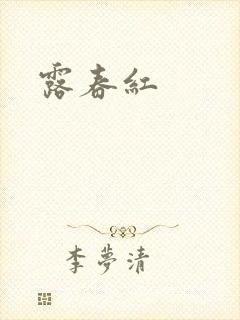 露春紅
李夢清